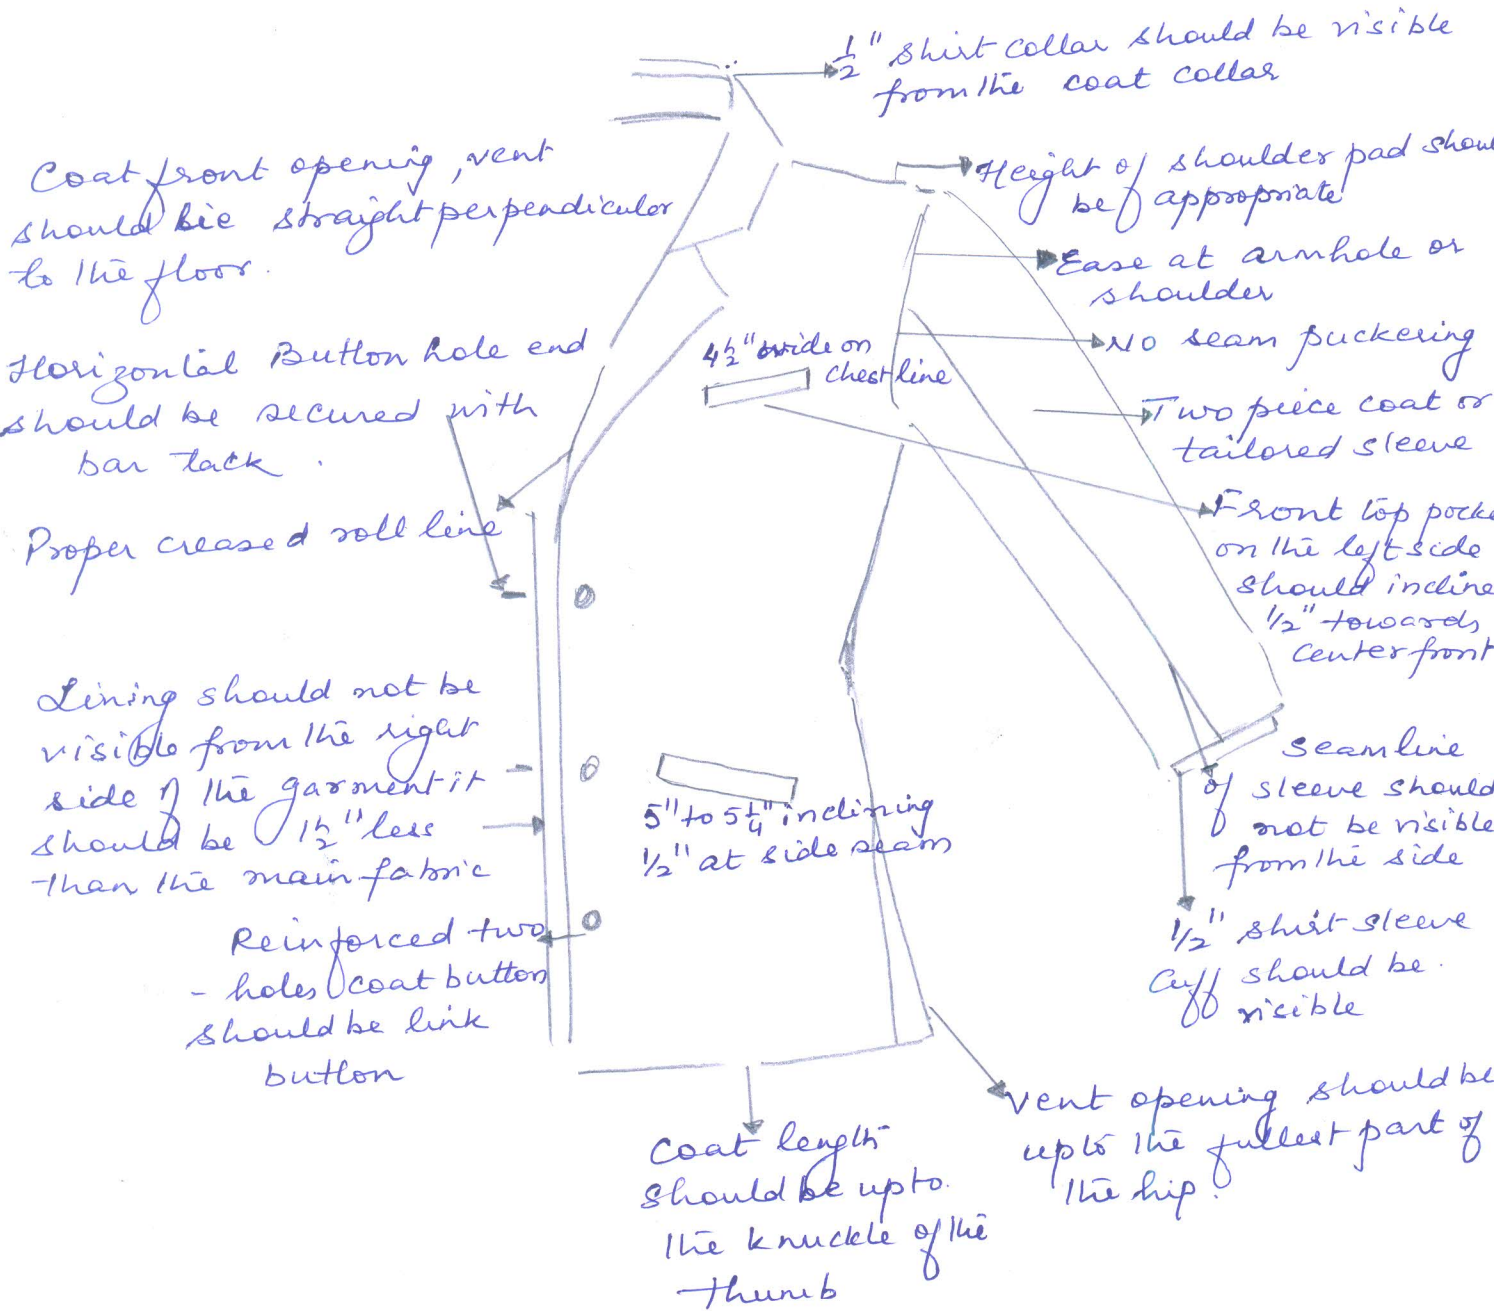 1/2" shirt collar should be visible
from the coat collar
Coat front opening, vent
should bie straight perpendicular
to the floor.
Height of shoulder pad shoul
be appropriate
Ease at armhole or
shoulder
Horizontal Button hole end
should be secured with
bar tack.
4 1/2" wide on
chest line
No seam puckering
Two piece coat or
tailored sleeve
Proper creased roll line
Front top pocke
on the left side
should incline
1/2" towards
center front
Lining should not be
visible from the right
side of the garment it
should be 1 1/2" less
than the main fabric
5" to 5 1/4" inclining
1/2" at side seam
seamline
of sleeve should
not be visible
from the side
Reinforced two
- holes coat button
should be link
button
1/2" shirt sleeve
Cuff should be.
visible
Coat length
should be upto.
the knuckle of the
thumb
Vent opening should be
upto the fullest part of
the hip.